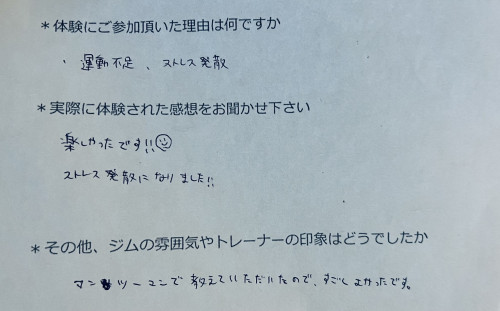 *体験にご参加頂いた理由は何ですか
・運動不足、ストレス発散
*実際に体験された感想をお聞かせ下さい
楽しかったです!!☺
ストレス発散になりました!!
*その他、ジムの雰囲気やトレーナーの印象はどうでしたか
マンツーマンで教えていただいたので、すごくよかったです。